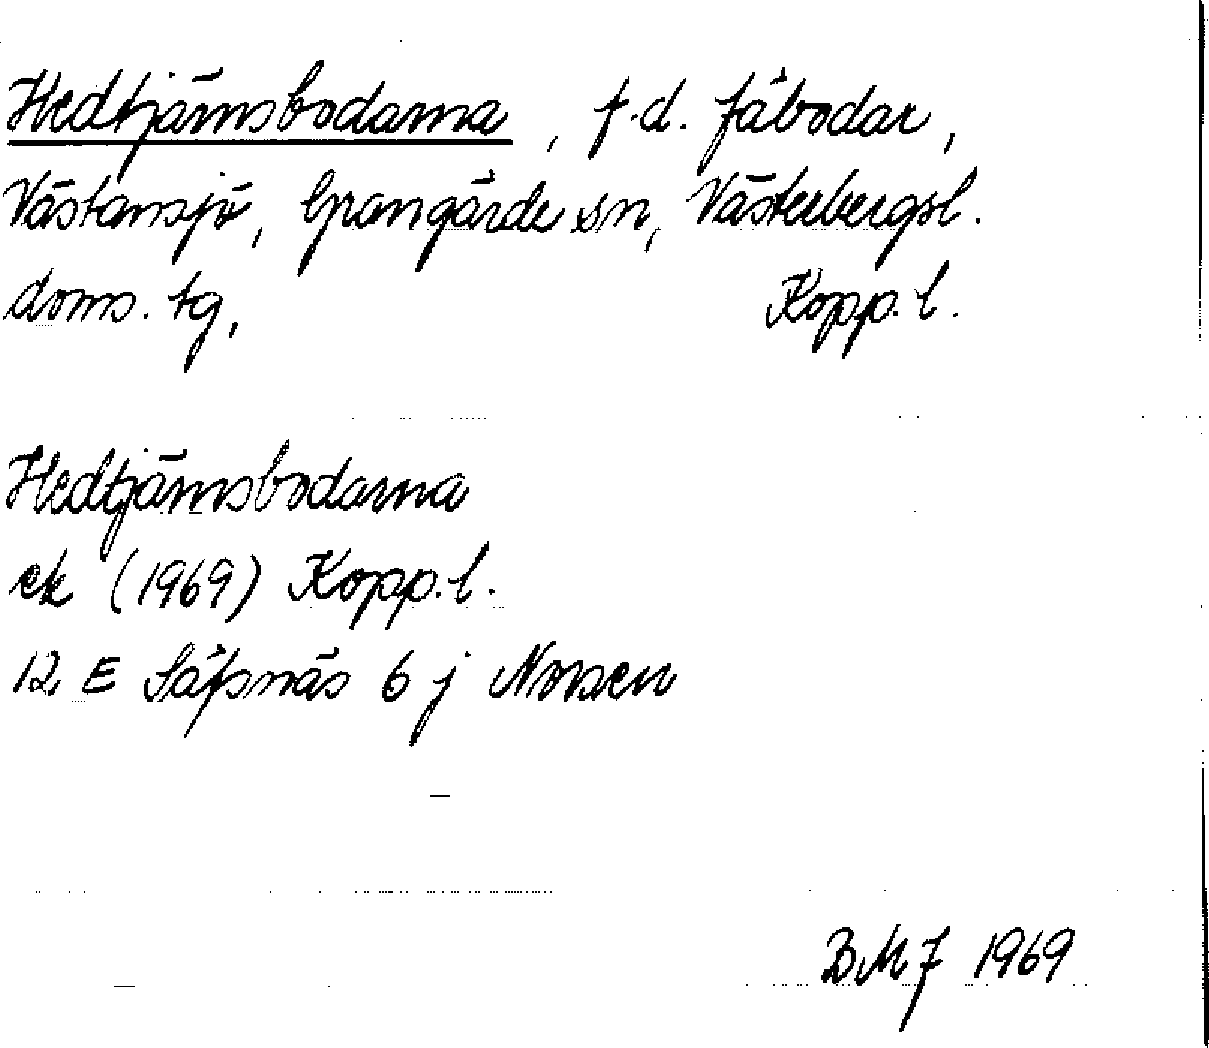 Hedtjärnsbodarna, f.d. fäbodar,
Västansjö, Grangärde sn, Västerbergsl.
doms. tg, Kopp. l.
Hedtjärnsbodarna
ek (1969) Kopp. l.
12 E Säfsnäs 6 j Norsen
BMJ 1969